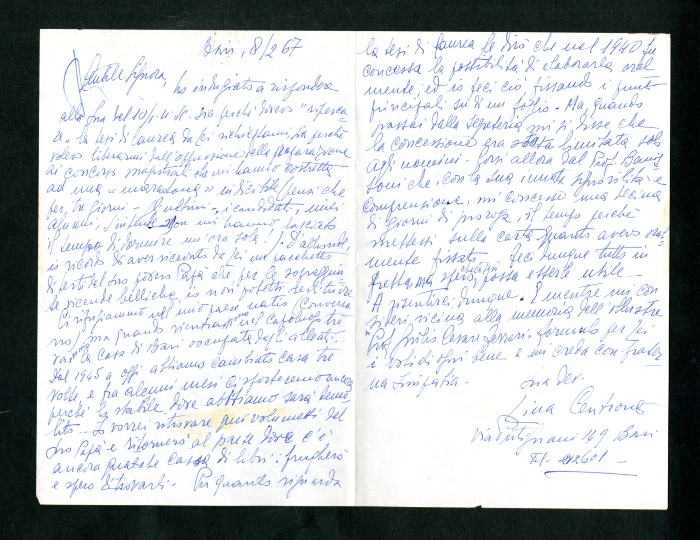 Bari, 8/2 67
Gentile Signora, ho indugiato a rispondere
alla Sua del 10/1 u.s. sia perché dovevo "ripesca-
re" la tesi di laurea da Lei richiestami sia perché
volevo liberarmi dell'oppressione della preparazione
di concorsi magistrali che mi hanno costretta
ad una maratona indicibile. Pensi che
per tre giorni gli ultimi, i candidati, miei
alunni, s'intende non mi hanno lasciato
il tempo di dormire un'ora sola! D'altronde,
io ricordo di aver ricevuto da Lei un pacchetto
di testi del Suo povero Papà che per le sopraggiun-
te vicende belliche io non potetti restituire.
Ci rifugiammo nel mio paese natio (Conversa-
no) ma quando rientrammo nel capoluogo tro-
vai la casa di Bari occupata dagli alleati...
Dal 1945 a oggi abbiamo cambiato casa tre
volte, e fra alcuni mesi ci sposteremo ancora
perché lo stabile dove abbiamo sarà demo-
lito. Io vorrei ritrovare quei volumetti del
Suo Papà e ritornerò al paese dove c'è
ancora qualche cassa di libri: frugherò
e spero di trovarli. Per quanto riguarda
la tesi di laurea Le dirò che nel 1940 fu
concessa la possibilità di elaborarla oral-
mente, ed io feci ciò, fissando i punti
principali su di un foglio. Ma, quando
passai dalla Segreteria mi si disse che
la concessione era stata limitata solo
agli uomini. Corsi allora dal Prof.
che, con la sua innata sensibilità e
comprensione, mi concesse una decina
di giorni di proroga, il tempo perché
mettessi sulla carta quanto avevo oral-
mente fissato. Feci dunque tutto in
fretta, ma spero che possa esserLe utile.
A risentirci dunque. E mentre mi con-
sideri vicina alla memoria dell'illustre
Prof. Giulio Cesare Ferrari formulo per Lei
i voti di ogni bene e mi creda con frater-
na simpatia.
Sua dev.
Lina Centrone
Via Putignani 149 Bari